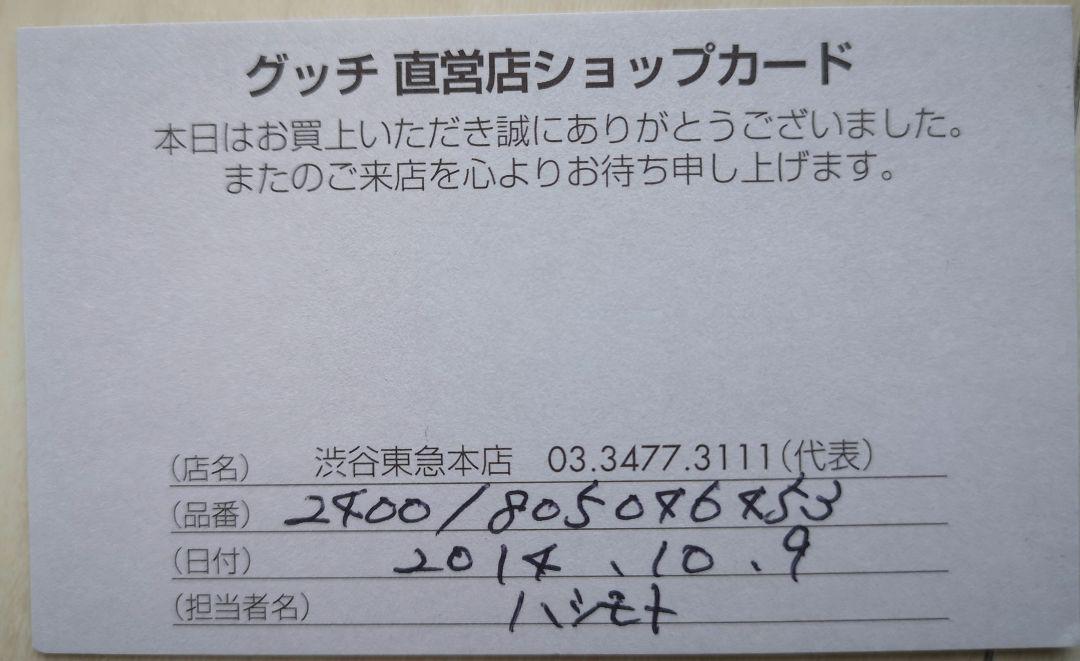 グッチ 直営店ショップカード
本日はお買上いただき誠にありがとうございました。
またのご来店を心よりお待ち申し上げます。
(店名) 渋谷東急本店 03.3477.3111(代表)
(品番) 2400/805046453
(日付) 2014、10、9
(担当者名) ハシモト